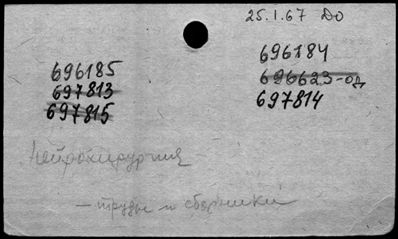 25.I.67 До
696185
697813
697815
696184
696623-од
697814
нейрохирургия
— труды и сборники